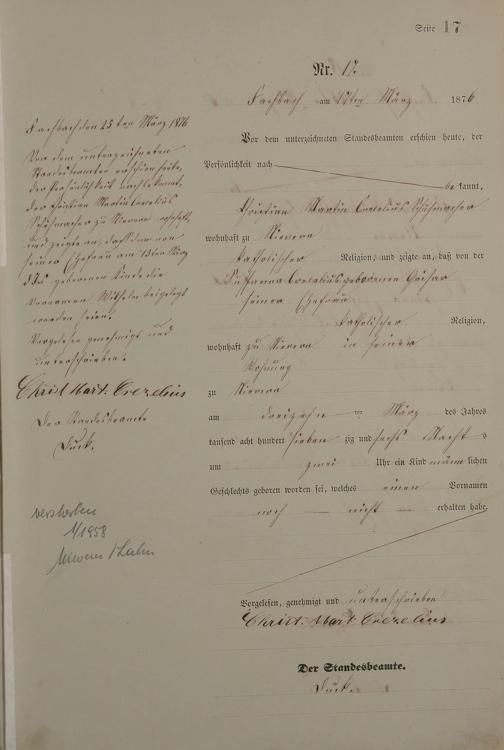 Seite 17
Nr. 17.
Fachbach, am 17ten März 1876
Vor dem unterzeichneten Standesbeamten erschien heute, der
Persönlichkeit nach
bekannt,
Christian Martin Crezelius Schuhmacher
wohnhaft zu Nievern
katholischer Religion, und zeigte an, daß von der
Crezelius geborenen
seiner Ehefrau
katholischer Religion,
wohnhaft zu Nievern in seiner
Wohnung
zu Nievern
am dreizehn ten März des Jahres
tausend acht hundert sieben zig und sechs Nacht s
um zwei Uhr ein Kind männlichen
Geschlechts geboren worden sei, welches einen Vornamen
noch nicht erhalten habe.
Vorgelesen, genehmigt und unterschrieben
Christ. Mart. Crezelius
Der Standesbeamte.
Fachbach den 25ten März 1876
Vor dem unterzeichneten
Standesbeamten erschien heute,
der Persönlichkeit nach bekannt,
der Christian Martin Crezelius
Schuhmacher zu Nievern wohnhaft,
und zeigte an, daß dem von
seiner Ehefrau am 13ten März
d. Js. geborenen Kinde die
Vornamen Wilhelm beigelegt
worden seien.
Vorgelesen genehmigt und
unterschrieben.
Christ. Mart. Crezelius
Der Standesbeamte
verstorben
1/1958
Nievern / Lahn